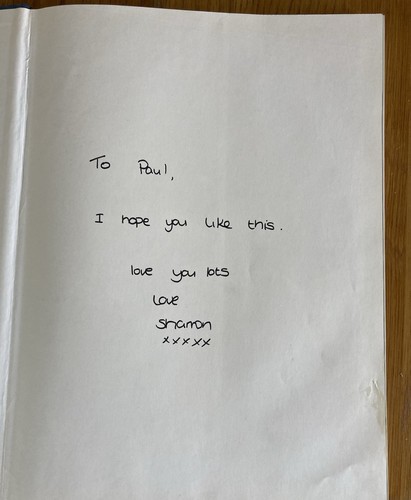 To Paul,
I hope you like this.
love you lots
Love
Sharon
xxxxx